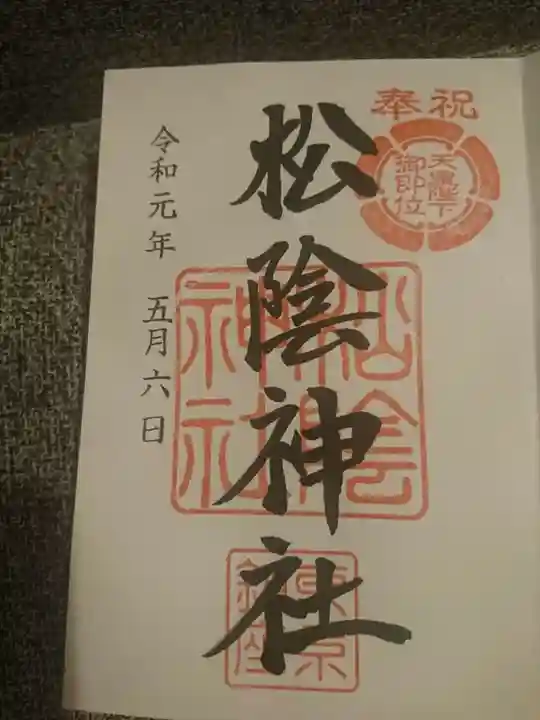 奉祝
天皇陛下
御即位
松陰神社
松陰神社
東京
鎮座
令和元年 五月六日